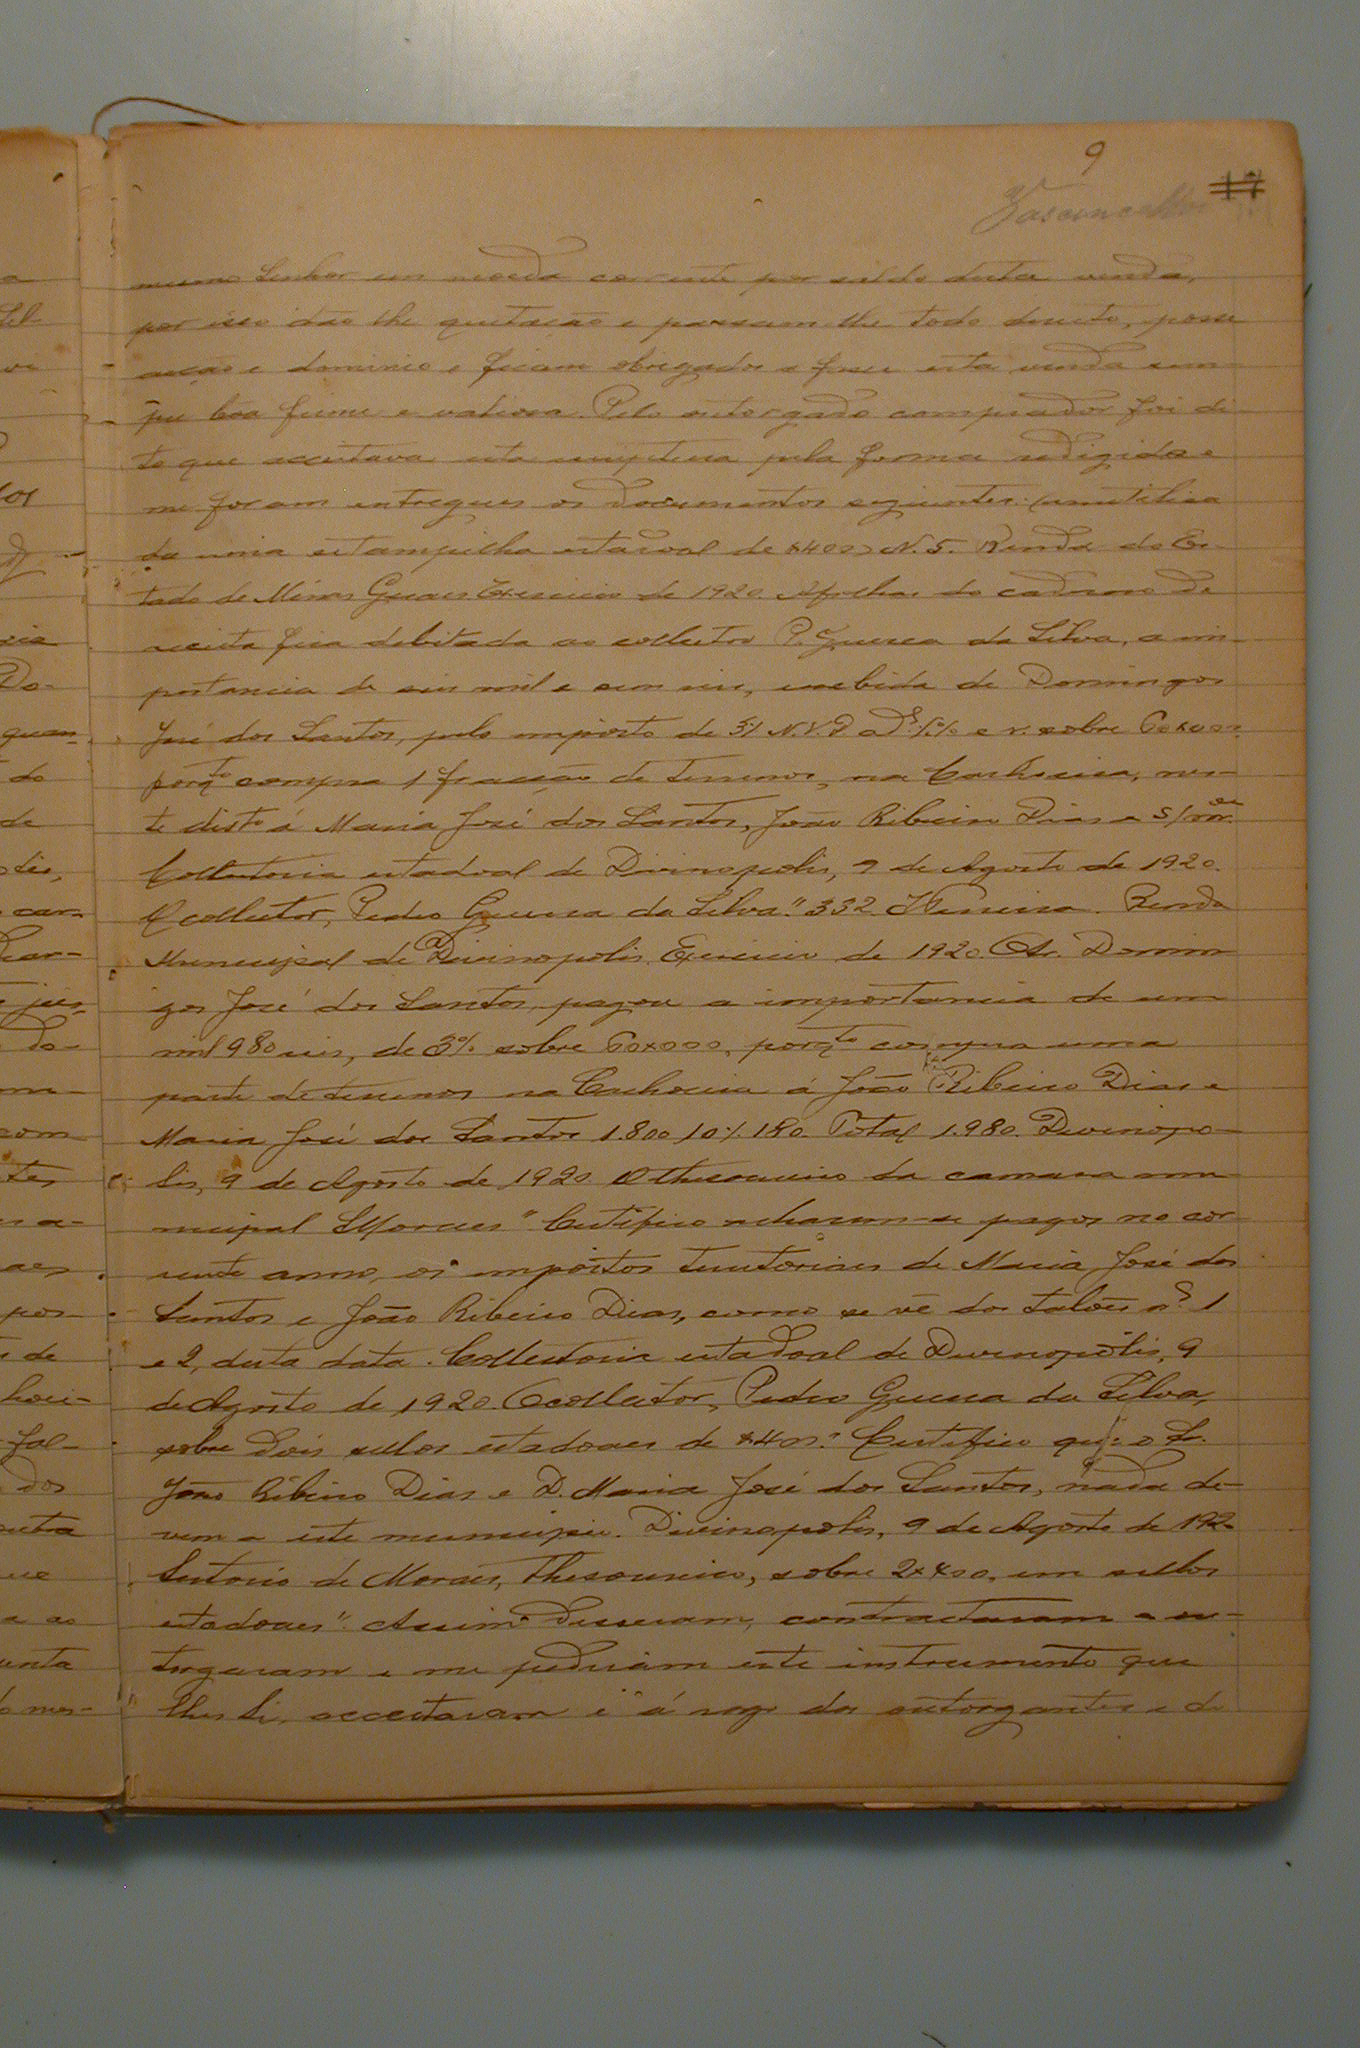 9
17
Vasconcellos
mesmo Senhor em moeda corrente por saldo desta venda,
por isso dão lhe quitação e passam-lhe todo direito, posse
acção e dominio e ficam obrigados a fazer esta venda sem-
pre bôa firme e valiosa. Pelo outorgado comprador foi di
to que acceitava esta escriptura pela forma redigida e
me foram entregues os documentos seguintes: (inutilisa
da uma estampilha estadoal de $400) N. 5. Renda do Es-
tado de Minas Geraes. Exercicio de 1920. A folhas do caderno de
receita fica debitada ao collector P. Guerra da Silva, a im-
portancia de seis mil e cem reis, recebida de Domingos
José dos Santos, pelo imposto de sobre 60$000.
porq^to compra 1 fracção de terrenos, na Cachoeira, nes-
te dist^o á Maria José dos Santos, João Ribeiro Dias e s/m^er.
Collectoria estadoal de Divinopolis, 9 de Agosto de 1920.
O collector, Pedro Guerra da Silva." 332 Renda
Municipal de Divinopolis. Exercicio de 1920. O Sr. Domin
gos José dos Santos, pagou a importancia de um
mil 980 reis, de 3% sobre 60$000, porq^to compra uma
parte de terrenos na Cachoeira á João Ribeiro Dias e
Maria José dos Santos 1.800 10% 180. Total 1.980. Divinopo-
lis, 9 de Agosto de 1920 O thesoureiro da camara mu-
nicipal Moraes" Certifico acharem-se pagos no cor-
rente anno, os impostos territoriaes de Maria José dos
Santos e João Ribeiro Dias, como se vê dos talões n^s 1
e 2, desta data. Collectoria estadoal de Divinopolis, 9
de Agosto de 1920. O collector, Pedro Guerra da Silva,
sobre dois sellos estadoaes de $400." Certifico que o Sr.
João Ribeiro Dias e D. Maria José dos Santos, nada de-
vem a este municipio. Divinopolis, 9 de Agosto de 192-
Antonio de Moraes, Thesoureiro, sobre 2$400, em sellos
estadoaes". Assim disseram, contractaram e ou-
torgaram e me pediram este instrumento que
lhes li, acceitaram e á rogo dos outorgantes e do